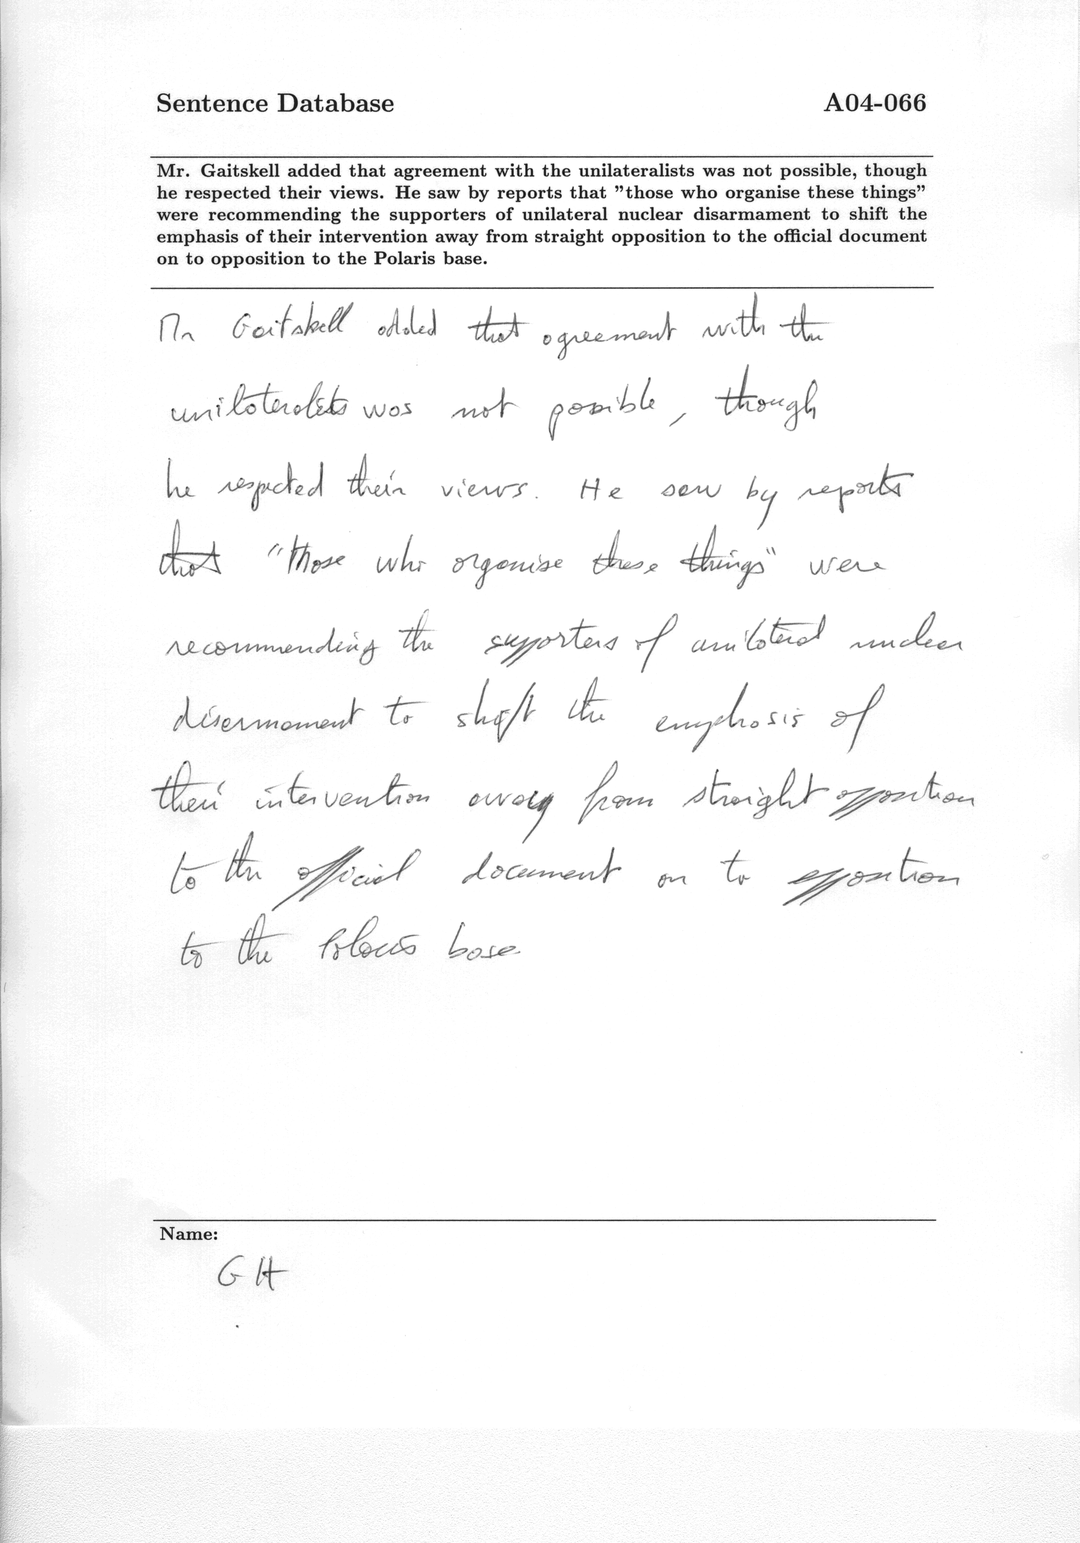 Sentence Database A04-066
Mr. Gaitskell added that agreement with the unilateralists was not possible, though
he respected their views. He saw by reports that "those who organise these things"
were recommending the supporters of unilateral nuclear disarmament to shift the
emphasis of their intervention away from straight opposition to the official document
on to opposition to the Polaris base.
Mr Gaitskell added that agreement with the
unilateralists was not possible, though
he respected their views. He saw by reports
that "those who organise these things" were
recommending the supporters of unilateral nuclear
disarmament to shift the emphasis of
their intervention away from straight opposition
to the official document on to opposition
to the Polaris base.
Name:
GH